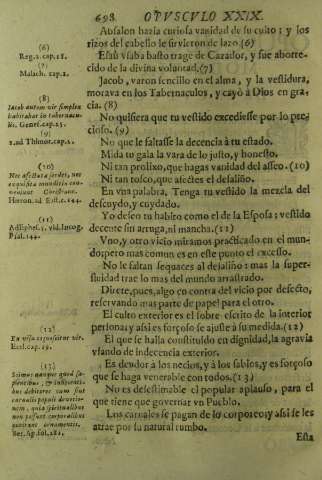 698 OPUSCULO XXIX.
Absalon hazía curiosa vanidad de su culto: y los
rizos del cabello le sirvieron de lazo.(6)
Esaù vsaba basto trage de Cazador, y fue aborre-
cido de la divina voluntad.(7)
Jacob, varon sencillo en el alma, y la vestidura,
morava en los Tabernaculos, y cayò à Dios en gra-
cia.(8)
No quisiera que tu vestido excediesse por lo pre-
cioso.(9)
No que le faltasse la decencia à tu estado.
Mida tu gala la vara de lo justo, y honesto.
Ni tan prolixo, que hagas vanidad del asseo.(10)
Ni tan tosco, que afectes el desaliño.
En vna palabra, Tenga tu vestido la mezcla del
descuydo, y cuydado.
Yo deseo tu habito como el de la Esposa; vestido
decente sin arruga, ni mancha.(11)
Vno, y otro vicio miramos practicado en el mun-
do: pero mas comun es en este punto el excesso.
No le faltan sequaces al desaliño: mas la super-
fluidad trae lo mas del mundo arrastrado.
Direte, pues, algo en contra del vicio por defecto,
reservando mas parte de papel para el otro.
El culto exterior es el sobre escrito de la interior
persona: y assi es forçoso se ajuste à su medida.(12)
El que se halla constituido en dignidad, la agravia
vsando de indecencia exterior.
Es deudor à los necios, y à los sabios, y es forçoso
que se haga venerable con todos.(13)
No es desestimable el popular aplauso, para el
que tiene que governar vn Pueblo.
Los carnales se pagan de lo corporeo; y assi se les
atrae por su natural rumbo.
Esta
(6)
Reg.2.cap.18.
(7)
Malach. cap.1.
(8)
Jacob autem vir simplex
habitabat in tabernacu-
lis. Genes.cap.25.
(9)
1.ad Thimot.cap.2.
(10)
Nec affectatæ sordes, nec
exquisitæ munditiæ con-
veniunt Christiano.
Hieron.ad Eust.c.144.
(11)
Ad Ephes.5. vid. Incog.
Psal.144.
(12)
Ex visu cognoscitur vir.
Eccl.cap.19.
(13)